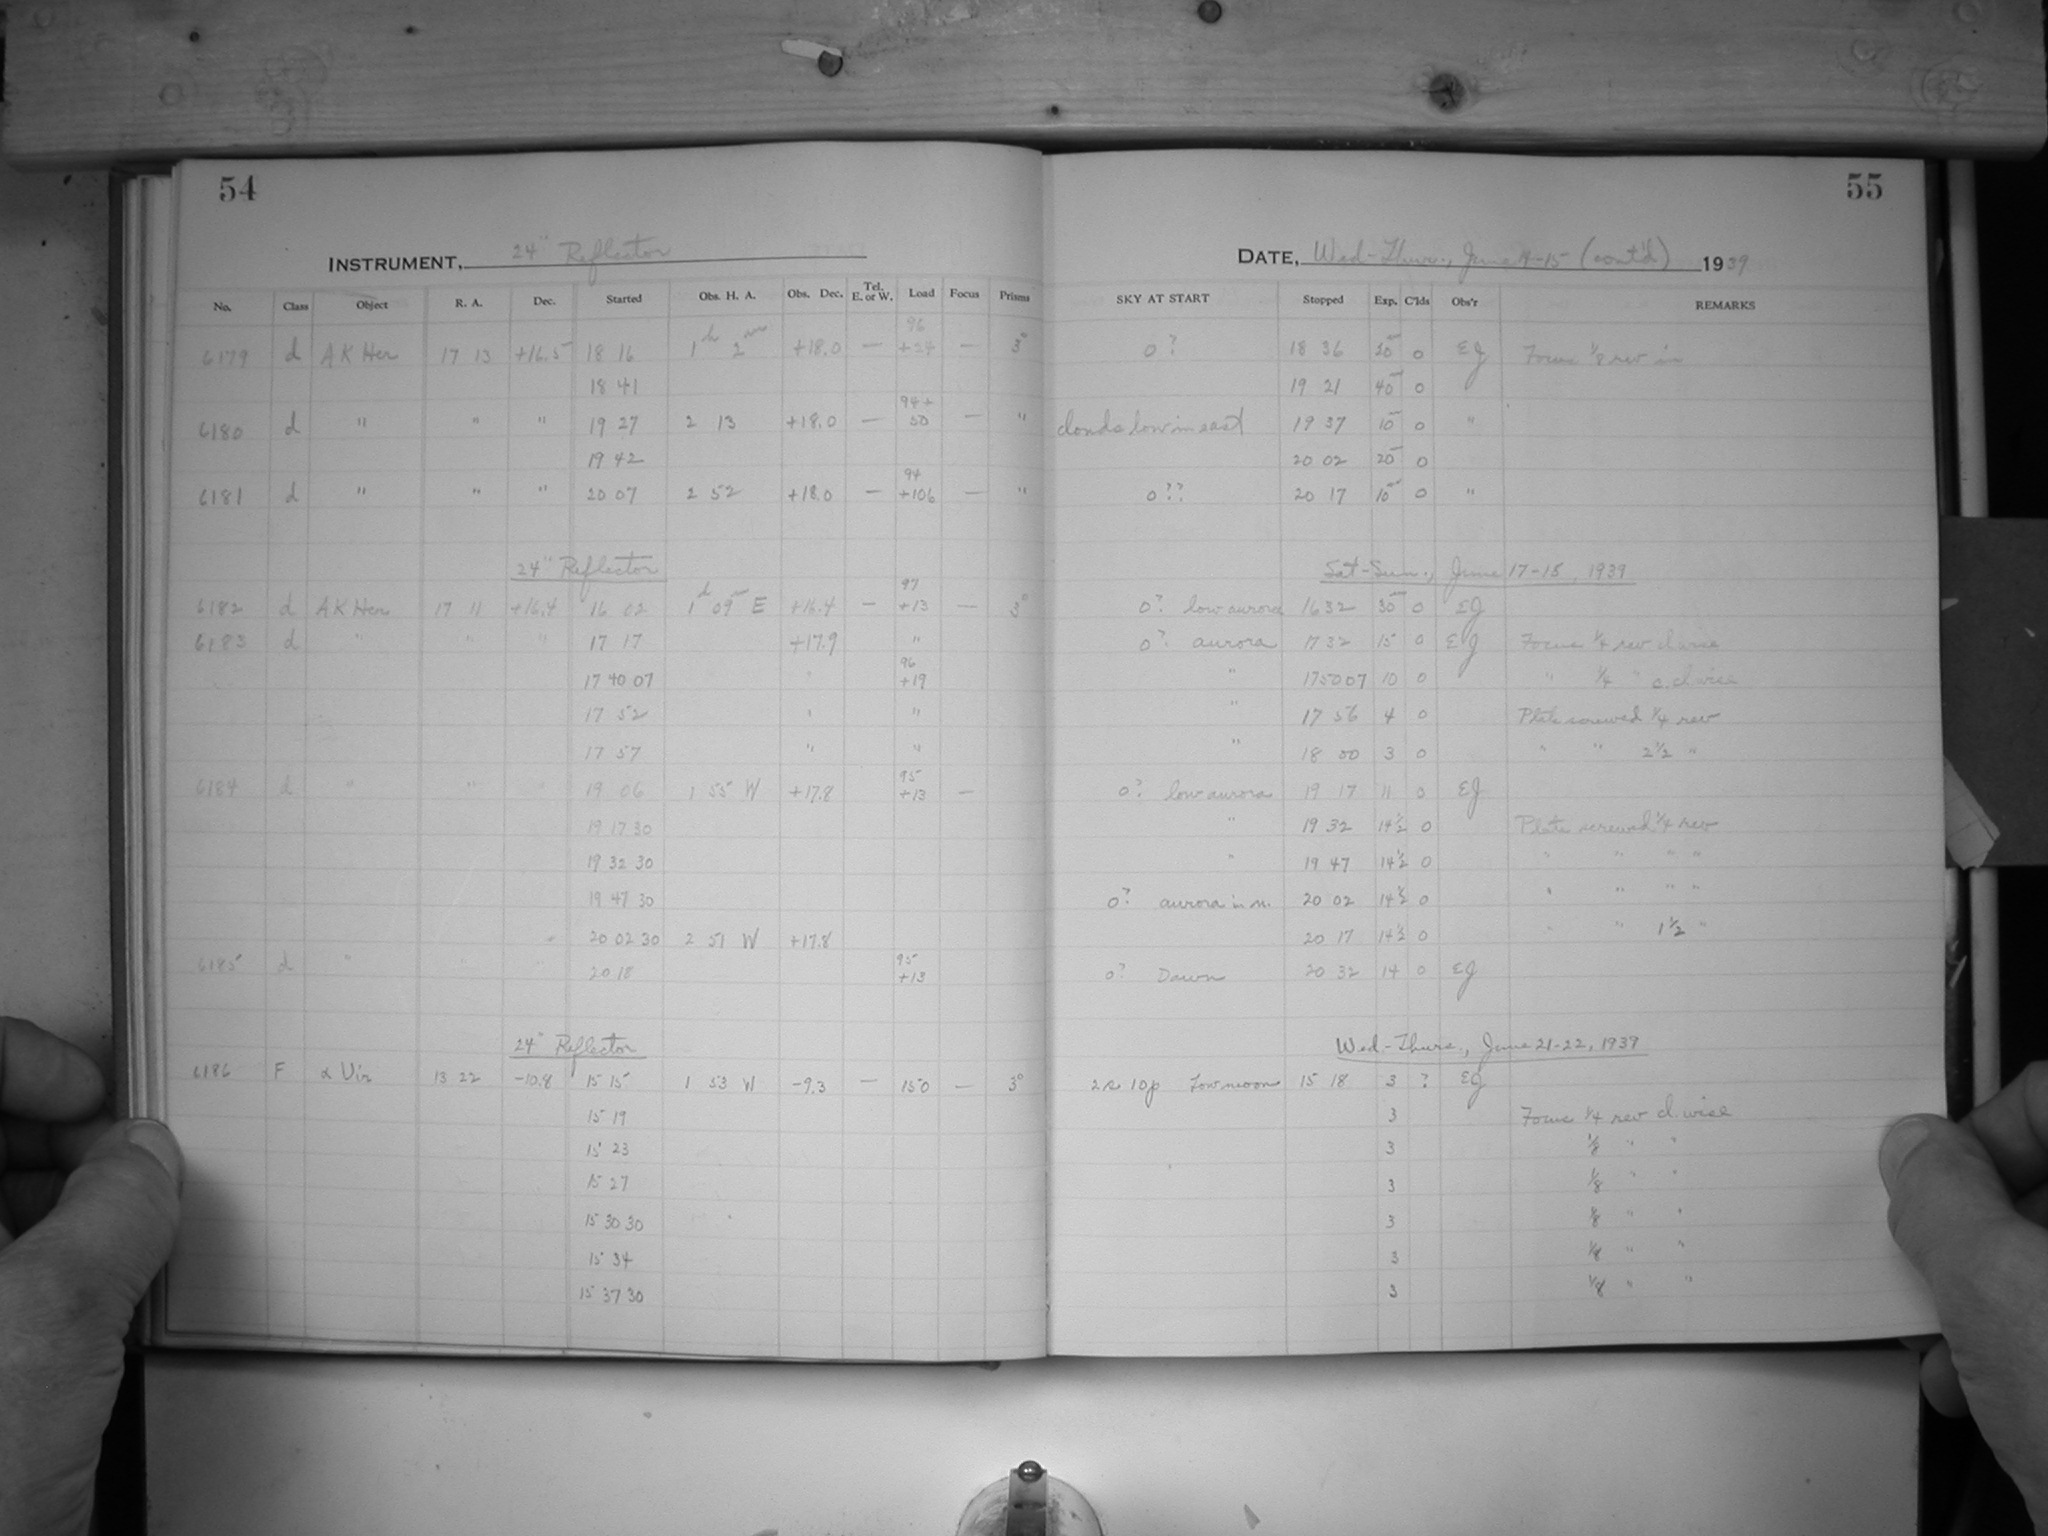 54
INSTRUMENT, 24" Reflector
No. Class Object R. A. Dec. Started Obs. H. A. Obs. Dec. Tel. E. or W. Load Focus Prisms
6179 d AK Her 17 13 +16.5 18 16 1h 2m +18.0 — 96 +24 — 3°
18 41
6180 d " " " 19 27 2 13 +18.0 — 94+ 50 — "
19 42
6181 d " " " 20 07 2 52 +18.0 — 94 +106 — "
24" Reflector
6182 d AK Her 17 11 +16.4 16 02 1h 09m E +16.4 — 97 +13 — 3°
6183 d " " " 17 17 +17.9 "
17 40 07 " 96 +19
17 52 " "
17 57 " "
6184 d " " " 19 06 1 55 W +17.8 95 +13 —
19 17 30
19 32 30
19 47 30
20 02 30 2 51 W +17.8
6185 d " 20 18 95 +13
24" Reflector
6186 F α Vir 13 22 -10.8 15 15 1 53 W -9.3 — 150 — 3°
15 19
15 23
15 27
15 30 30
15 34
15 37 30
55
DATE, Wed-Thurs., June 14-15 (cont'd) 1939
SKY AT START Stopped Exp. C'lds Obs'r REMARKS
0? 18 36 20m 0 EJ Focus 1/8 rev in
19 21 40m 0
clouds low in east 19 37 10m 0 "
20 02 20m 0
0?? 20 17 10m 0 "
Sat-Sun., June 17-18, 1939
0? low aurora 16 32 30m 0 EJ
0? aurora 17 32 15 0 EJ Focus 1/4 rev cl.wise
" 17 50 07 10 0 " 1/4 " c.cl.wise
" 17 56 4 0 Plate screwed 1/4 rev
" 18 00 3 0 " " 2 1/2 "
0? low aurora 19 17 11 0 EJ
" 19 32 14 1/2 0 Plate screwed 1/4 rev
" 19 47 14 1/2 0 " " " "
0? aurora in n. 20 02 14 1/2 0 " " " "
20 17 14 1/2 0 " " 1 1/2 "
0? Dawn 20 32 14 0 EJ
Wed-Thurs., June 21-22, 1939
10p Low moon 15 18 3 ? EJ
3 Focus 1/4 rev cl. wise
3 " "
3 1/8 " "
3 1/8 " "
3 1/8 " "
3 1/8 " "